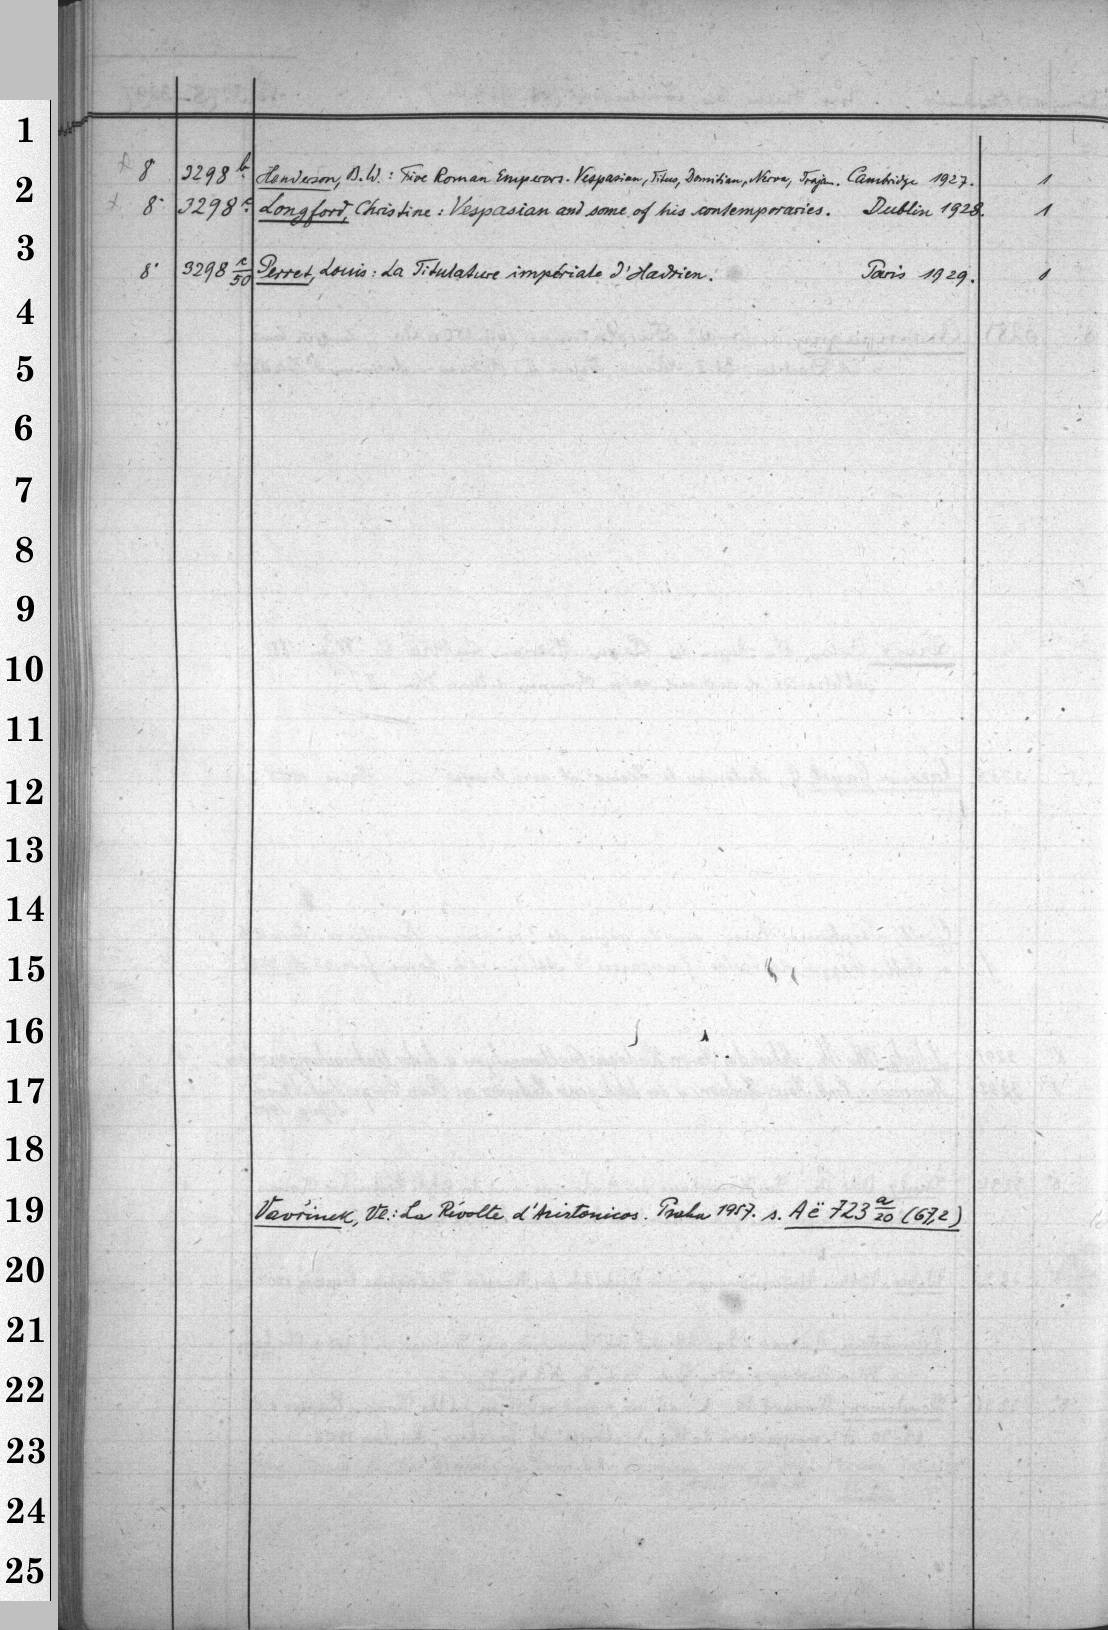 1
2
3
4
5
6
7
8
9
10
11
12
13
14
15
16
17
18
19
20
21
22
23
24
25
x 8° 3298 b. Henderson, B. W.: Five Roman Emperors. Vespasian, Titus, Domitian, Nerva, Trajan. Cambridge 1927. 1
x 8° 3298 c. Longford, Christine: Vespasian and some of his contemporaries. Dublin 1928. 1
8° 3298 c/50 Perret, Louis: La Titulature impériale d'Hadrien. Paris 1929. 1
Vavřinek, Vl.: La Révolte d'Aristonicos. Praha 1957. s. Aë 723 a/20 (67,2)